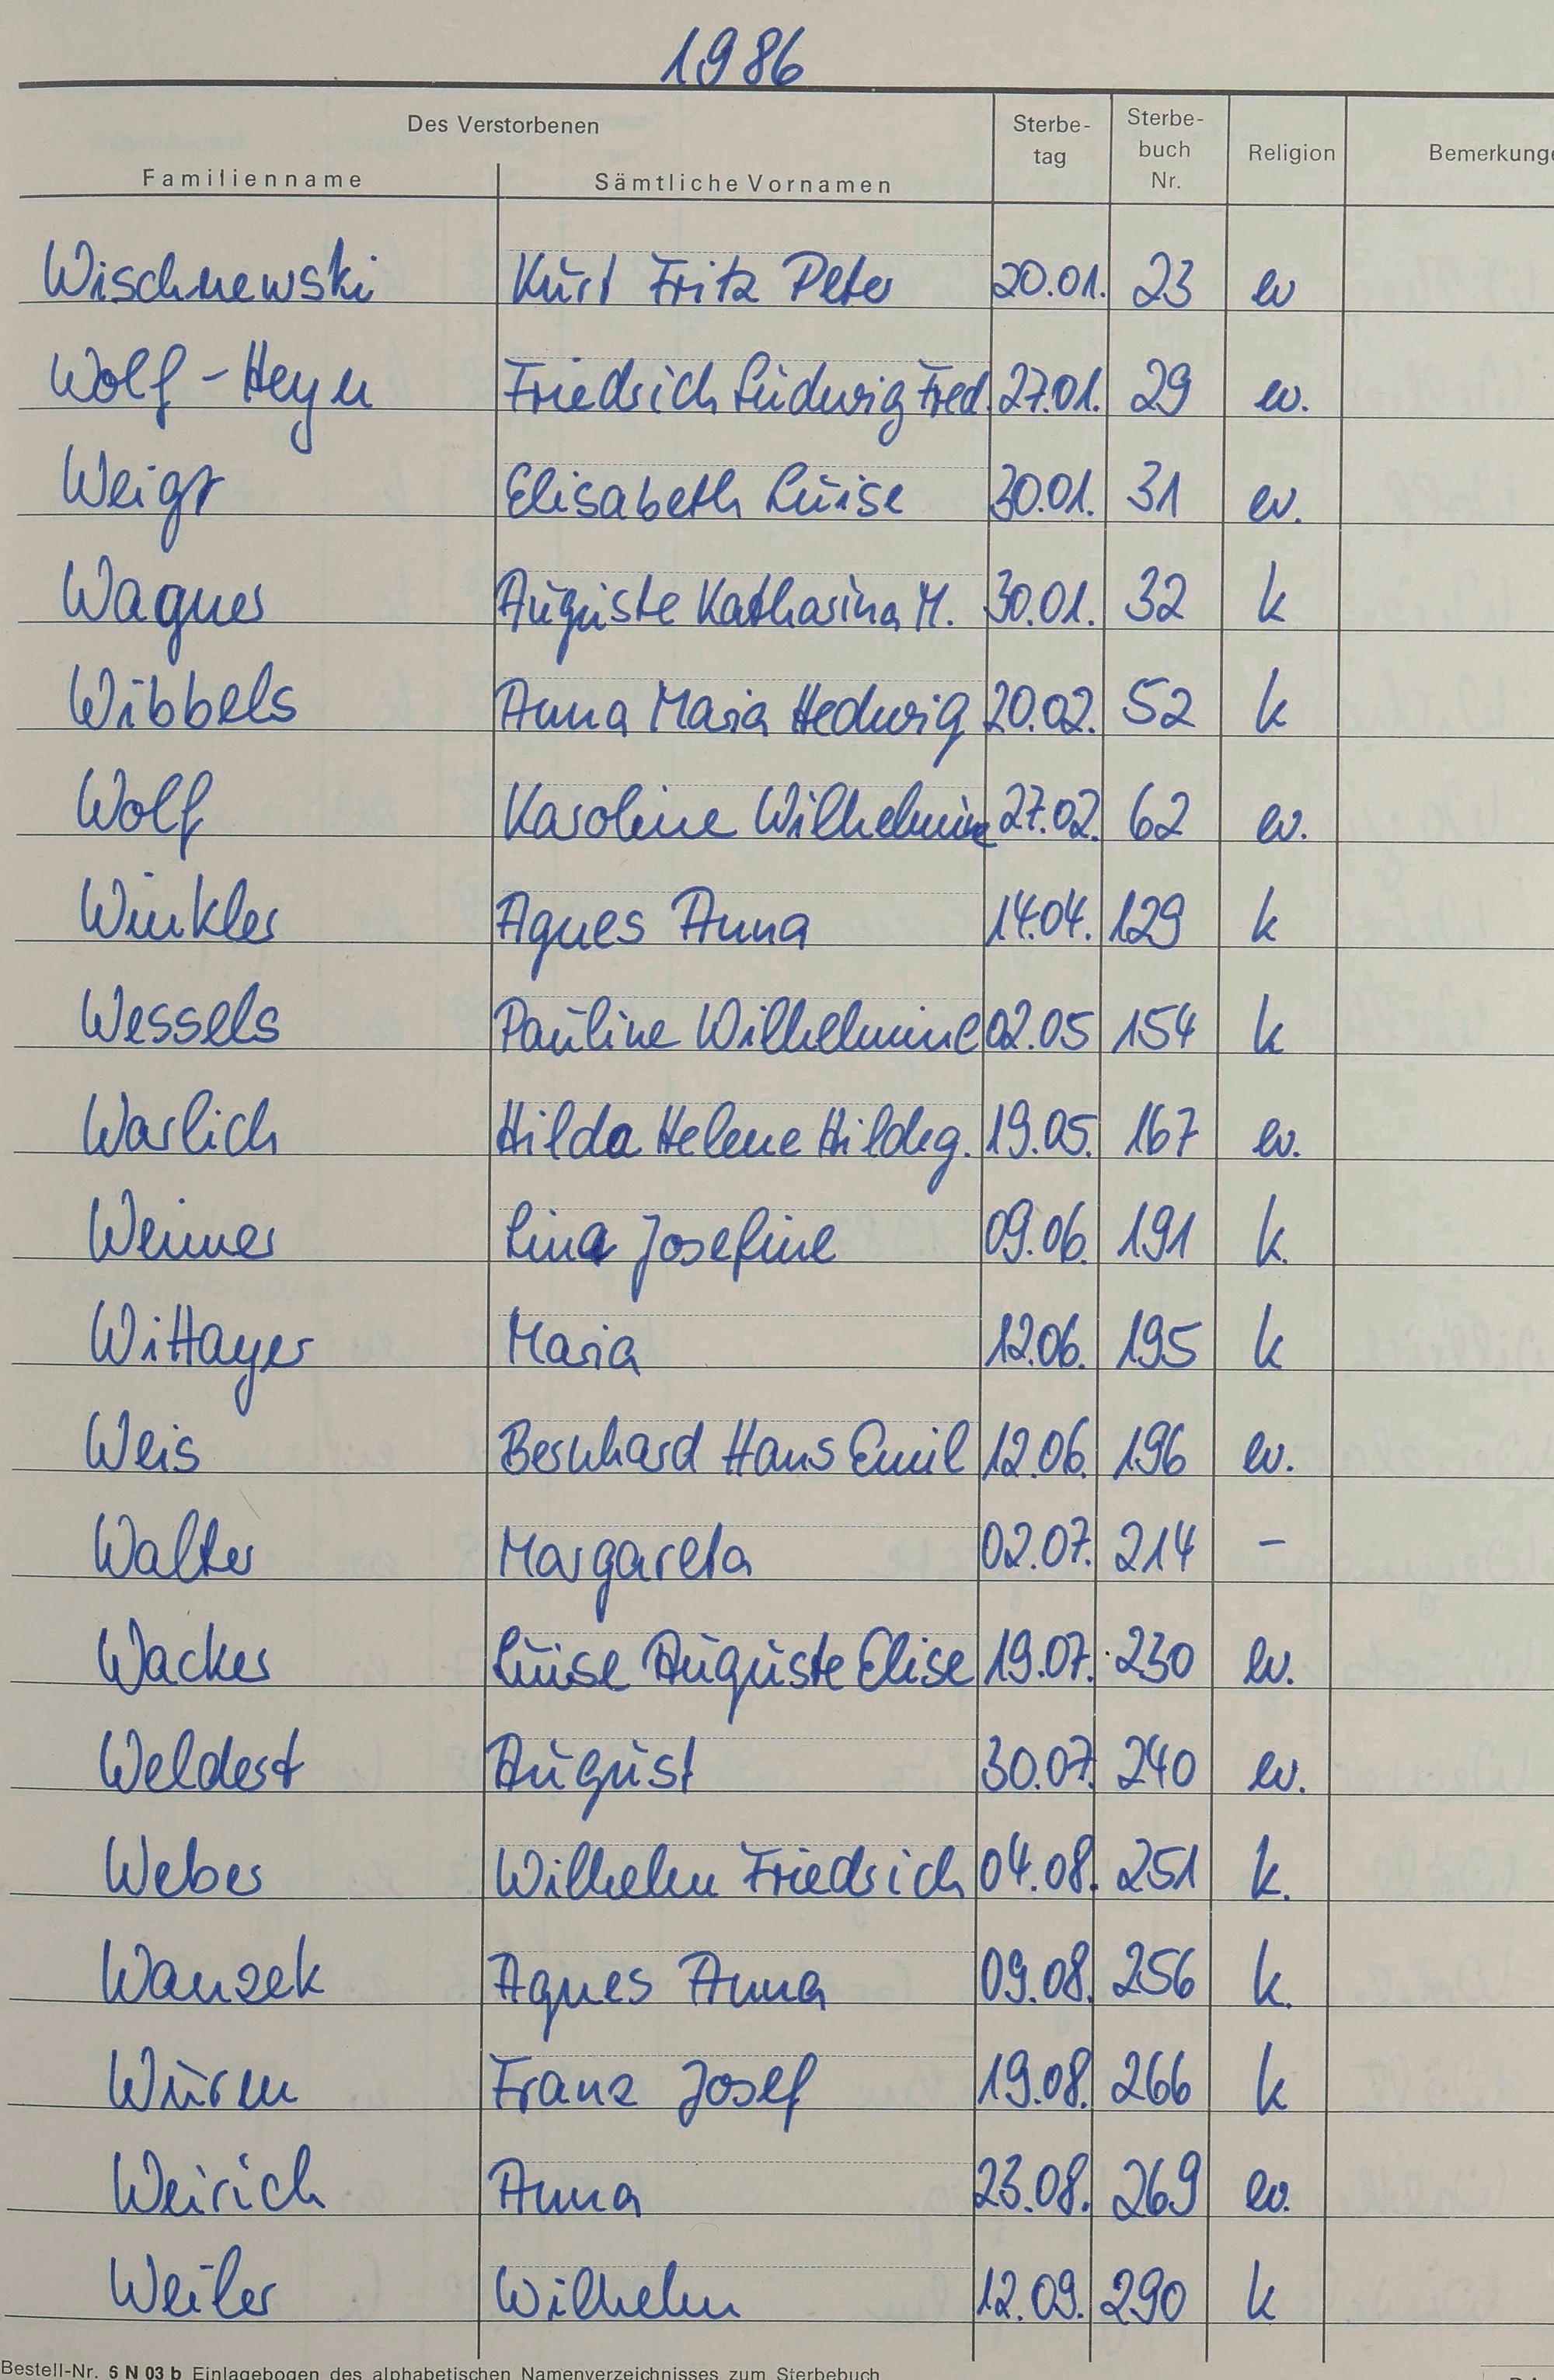 1986
Des Verstorbenen
Familienname Sämtliche Vornamen Sterbe-tag Sterbe-buch Nr. Religion Bemerkunge
Wischnewski Kurt Fritz Peter 20.01. 23 ev
Wolf-Heyn Friedrich Ludwig Fred. 27.01. 29 ev.
Weigt Elisabeth Luise 30.01. 31 ev.
Wagner Auguste Katharina M. 30.01. 32 k
Wibbels Anna Maria Hedwig 20.02. 52 k
Wolf Karoline Wilhelmine 27.02. 62 ev.
Winkler Agnes Anna 14.04. 129 k
Wessels Pauline Wilhelmine 02.05 154 k
Warlich Hilda Helene Hildeg. 19.05. 167 ev.
Weimer Lina Josefine 09.06. 191 k.
Wittayer Maria 12.06. 195 k
Weis Bernhard Hans Emil 12.06. 196 ev.
Walter Margareta 02.07. 214 –
Wacker Luise Auguste Elise 19.07. 230 ev.
Weldert August 30.07. 240 ev.
Weber Wilhelm Friedrich 04.08. 251 k.
Wanzek Agnes Anna 09.08. 256 k.
Würm Franz Josef 19.08. 266 k
Weirich Anna 23.08. 269 ev.
Weiler Wilhelm 12.09. 290 k
Bestell-Nr. 6 N 03 b Einlagebogen des alphabetischen Namenverzeichnisses zum Sterbebuch